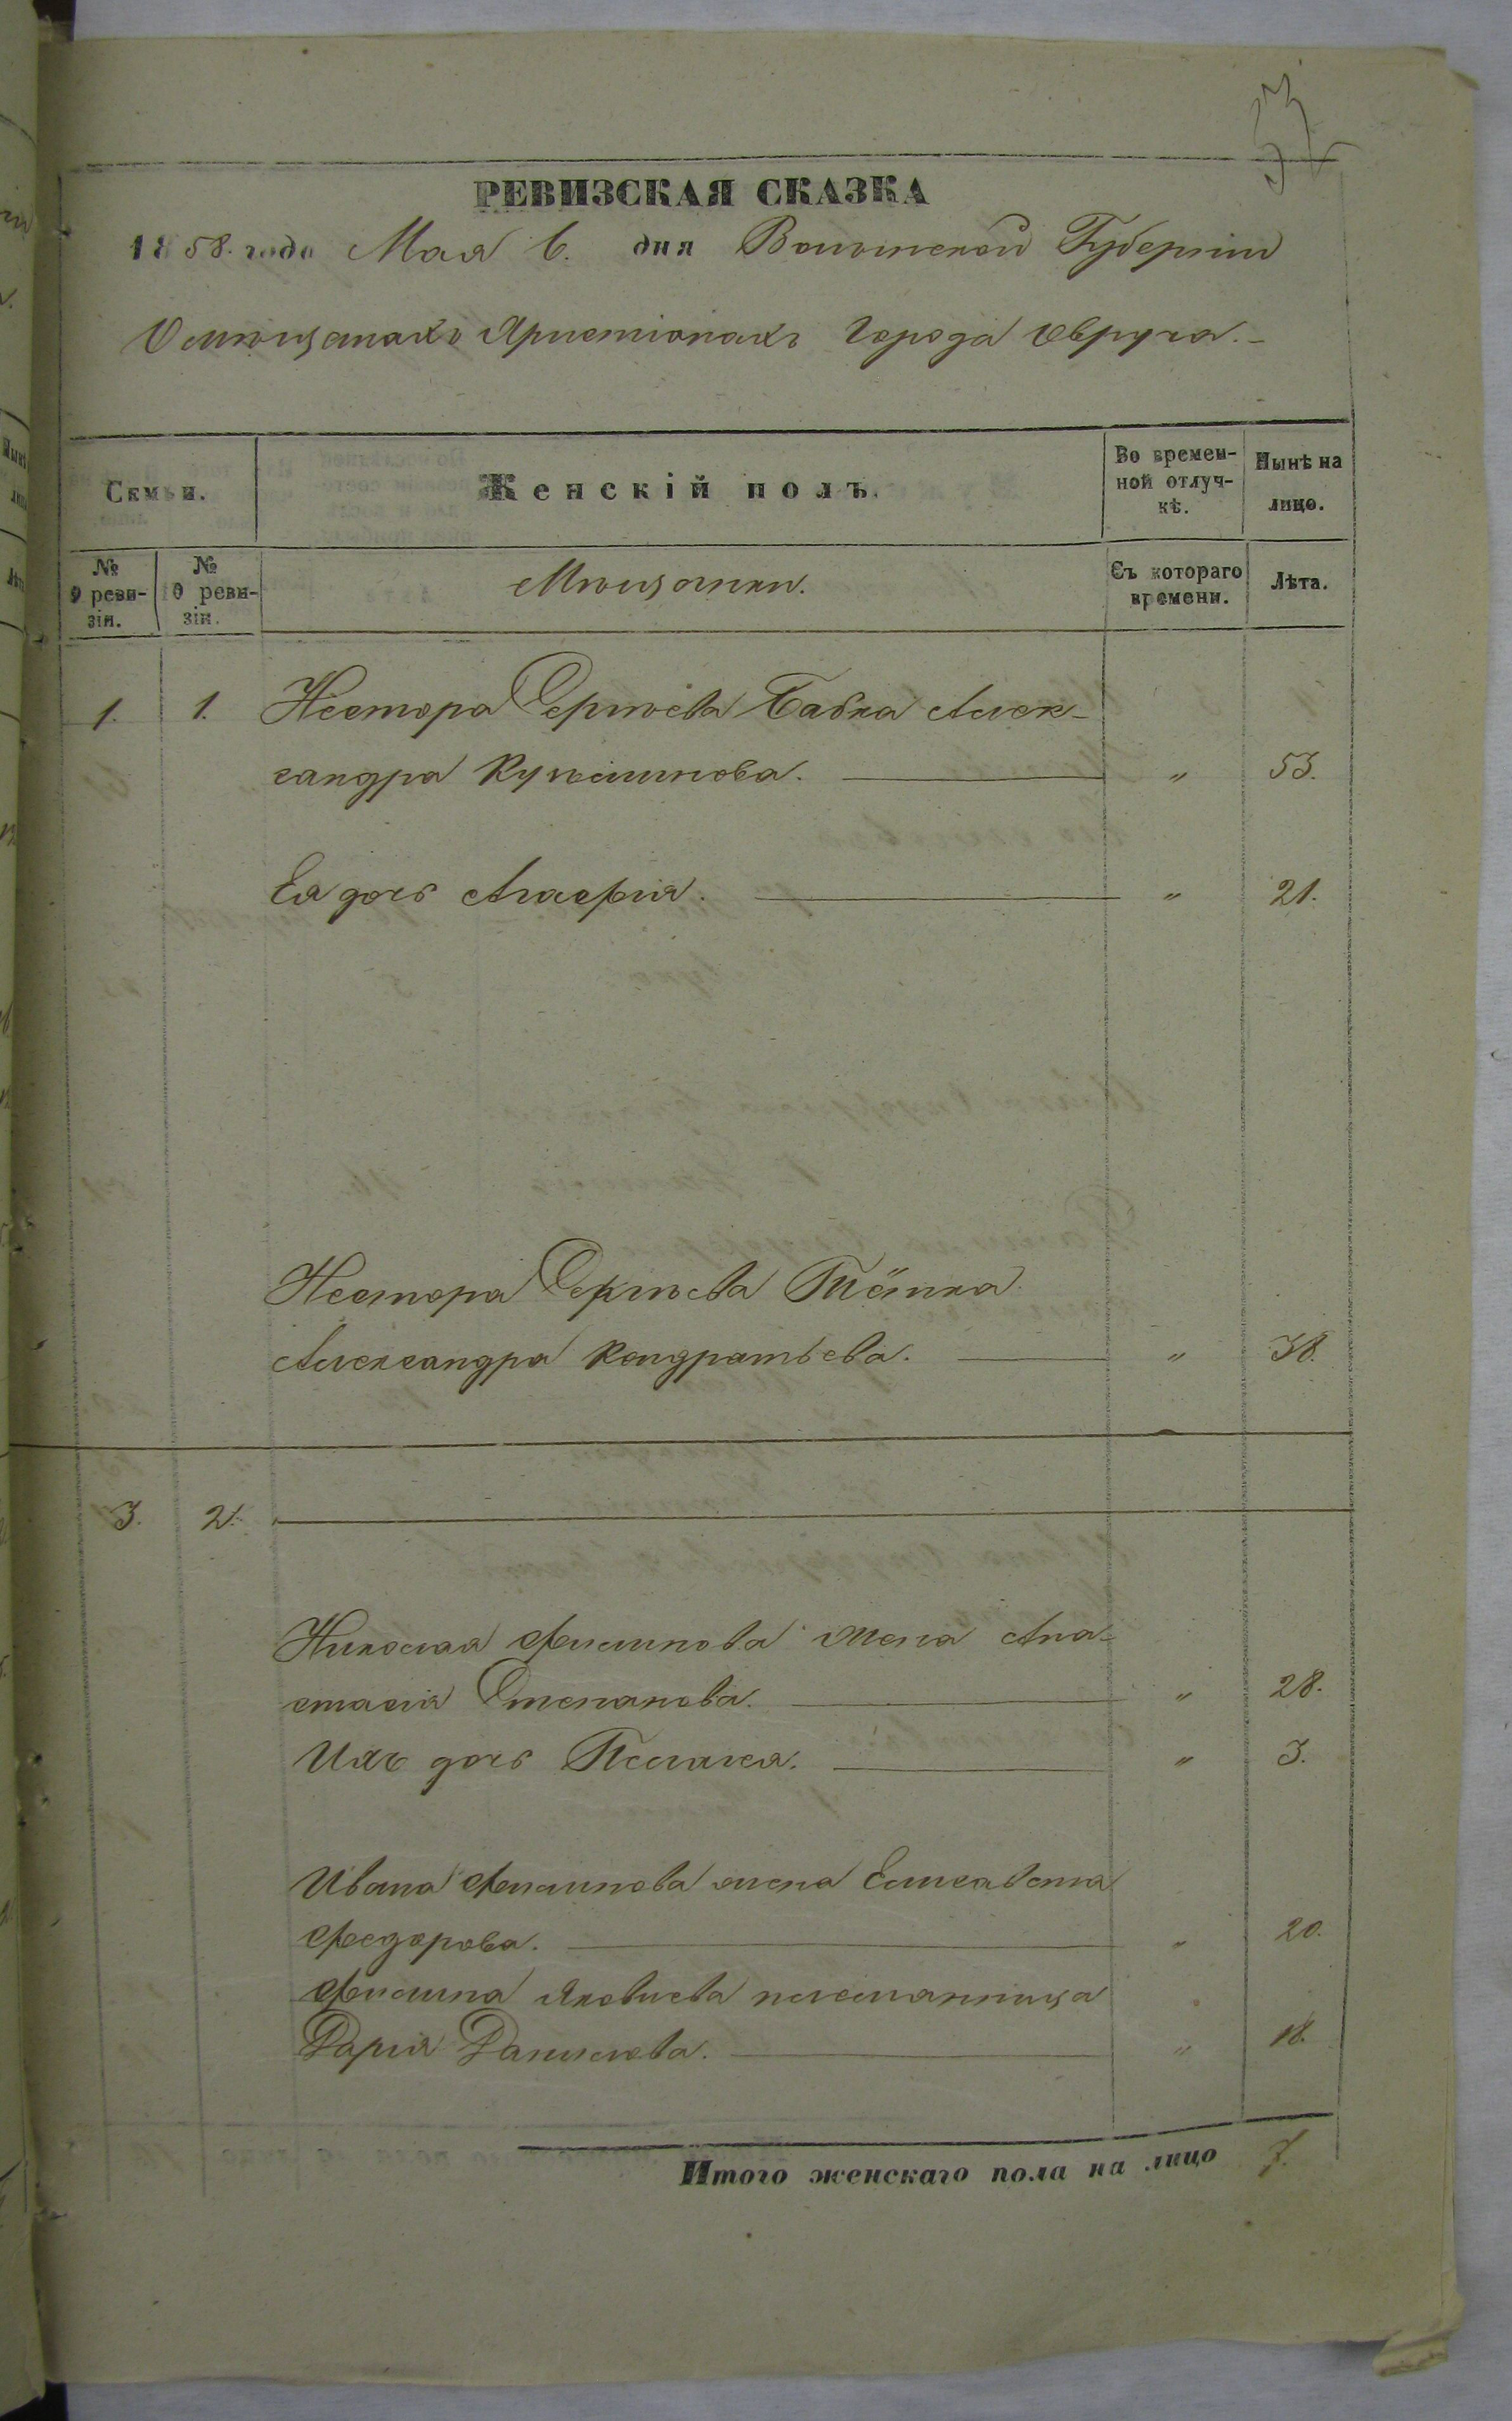 РЕВИЗСКАЯ СКАЗКА
1858. года Мая 6. дня Волынской Губерніи
О мѣщанахъ Христіанахъ Города Овруча.
Семьи.
Женскій полъ.
Во времен-
ной отлуч-
кѣ.
Нынѣ на
лицо.
№
9 реви-
зіи.
№
10 реви-
зіи.
Мѣщанки.
Съ котораго
времени.
Лѣта.
1. 1. Нестора Сергѣева Бабка Алек-
сандра " 53.
Ея дочь Агафія. " 21.
Нестора Сергѣева Тётка
Александра Кондратьева. " 38.
3. 2.
Николая Филипова жена Ана-
стасія Степанова. " 28.
Ихъ дочь Пелагея. " 3.
Ивана Филипова жена Елисавета
Федорова. " 20.
Филипа Яковлева племянница
Дарія Данилова. " 18.
Итого женскаго пола на лицо 7.